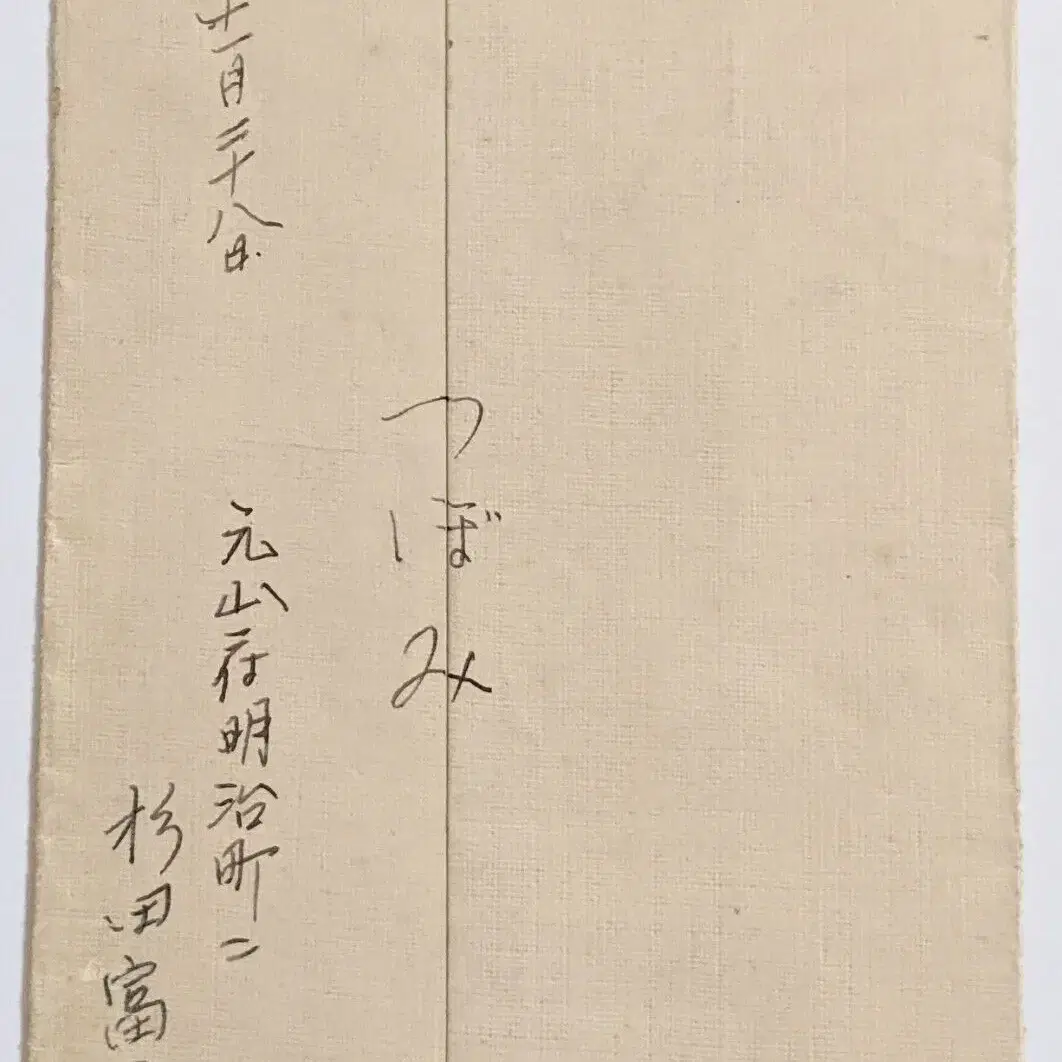 つぼみ
十一月二十八日
元山府明治町二
杉田富